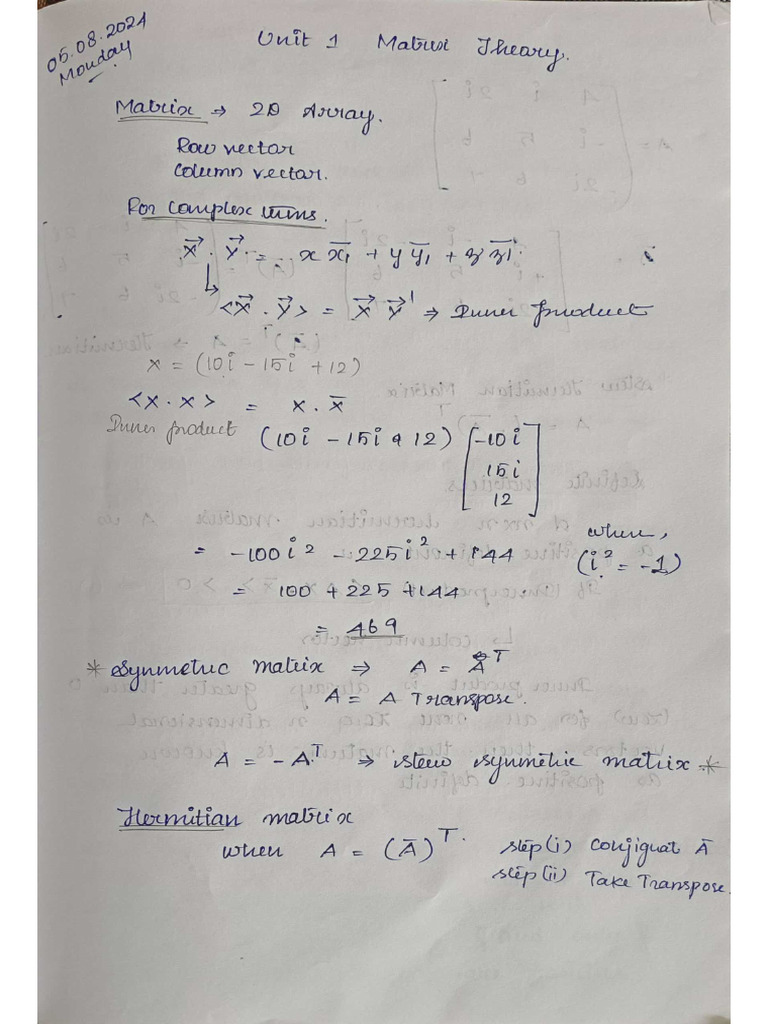 05.08.2024
Monday
Unit 1 Matrix Theory.
Matrix → 2D Array.
Row vector
Column vector.
For complex terms.
x⃗ . y⃗ = x x̄₁ + y ȳ₁ + z z̄₁
<x⃗ . y⃗> = x⃗ y⃗' ⇒ Inner product
x = (10i - 15i + 12)
<x . x> = x . x̄
Inner product (10i - 15i 12) [-10i
15i
12]
= -100i² - 225i² + 144 when, (i² = -1)
= 100 + 225 + 144
= 469
* Symmetric matrix ⇒ A = A^T
A = A Transpose.
A = -A^T ⇒ skew symmetric matrix *
Hermitian matrix
when A = (Ā)^T. step(i) conjiguat Ā
step(ii) Take Transpose.